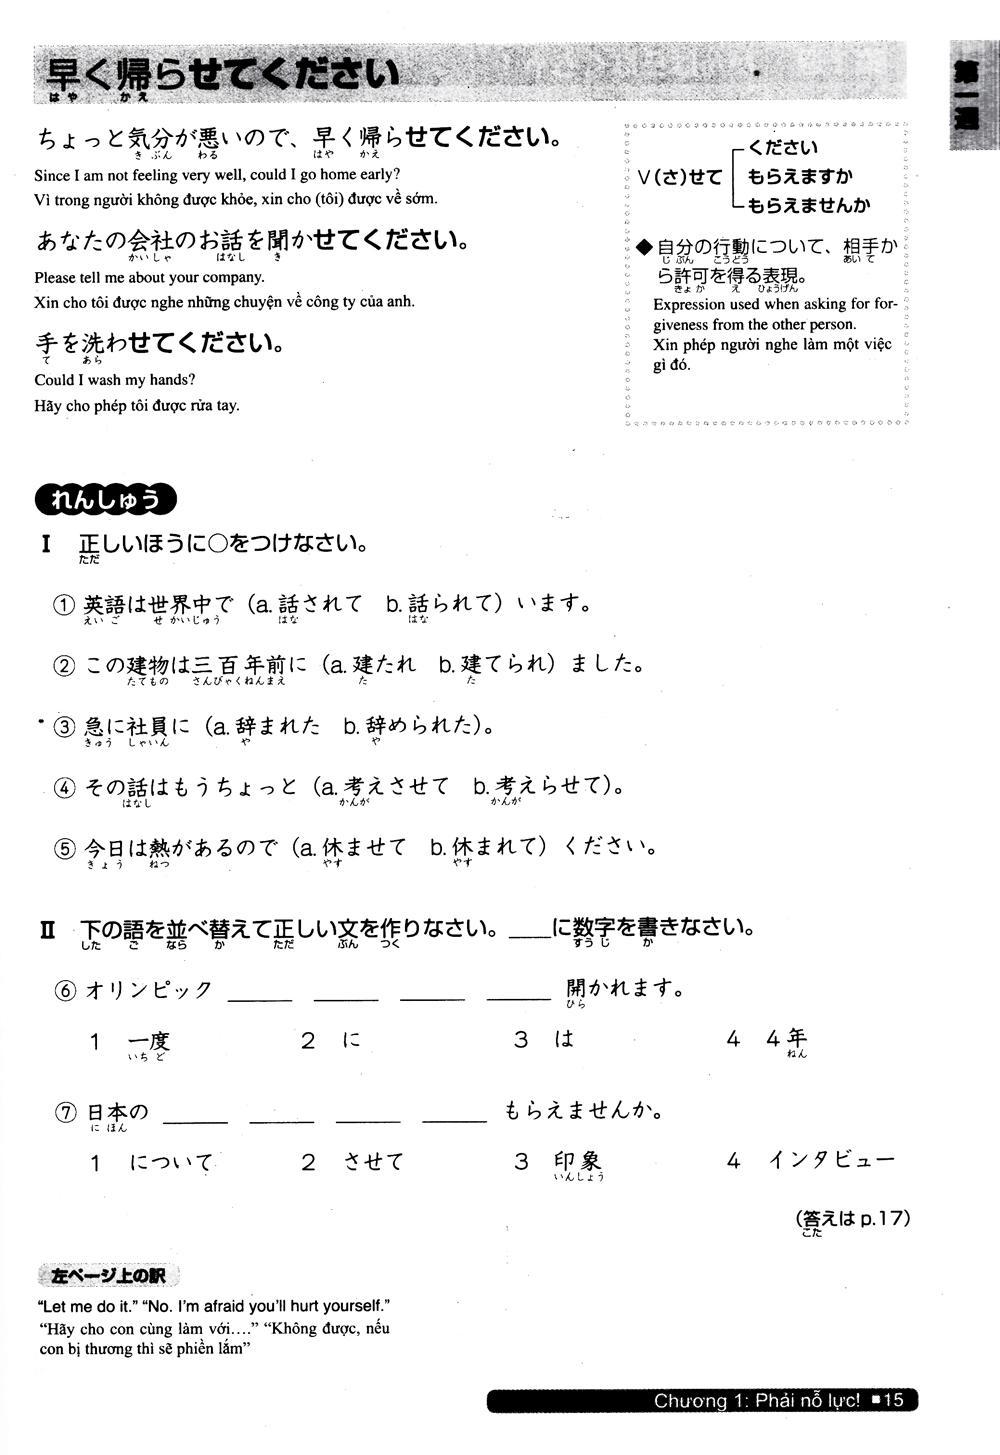 早く帰らせてください
はや かえ
第一週
ちょっと気分が悪いので、早く帰らせてください。
きぶん わる はや かえ
Since I am not feeling very well, could I go home early?
Vì trong người không được khỏe, xin cho (tôi) được về sớm.
あなたの会社のお話を聞かせてください。
かいしゃ はなし き
Please tell me about your company.
Xin cho tôi được nghe những chuyện về công ty của anh.
手を洗わせてください。
て あら
Could I wash my hands?
Hãy cho phép tôi được rửa tay.
ください
V(さ)せて もらえますか
もらえませんか
◆自分の行動について、相手か
じぶん こうどう あいて
ら許可を得る表現。
きょか え ひょうげん
Expression used when asking for for-
giveness from the other person.
Xin phép người nghe làm một việc
gì đó.
れんしゅう
I 正しいほうに○をつけなさい。
ただ
① 英語は世界中で（a.話されて b.話られて）います。
えいご せかいじゅう はな はな
② この建物は三百年前に（a.建たれ b.建てられ）ました。
たてもの さんびゃくねんまえ た た
③ 急に社員に（a.辞まれた b.辞められた）。
きゅう しゃいん や や
④ その話はもうちょっと（a.考えさせて b.考えらせて）。
はなし かんが かんが
⑤ 今日は熱があるので（a.休ませて b.休まれて）ください。
きょう ねつ やす やす
II 下の語を並べ替えて正しい文を作りなさい。___に数字を書きなさい。
した ご なら か ただ ぶん つく すうじ か
⑥ オリンピック ____ ____ ____ ____ 開かれます。
ひら
1 一度 2 に 3 は 4 4年
いちど ねん
⑦ 日本の ____ ____ ____ ____ もらえませんか。
にほん
1 について 2 させて 3 印象 4 インタビュー
いんしょう
（答えは p.17）
こた
左ページ上の訳
“Let me do it.” “No. I'm afraid you'll hurt yourself.”
“Hãy cho con cùng làm với….” “Không được, nếu
con bị thương thì sẽ phiền lắm”
Chương 1: Phải nỗ lực! ■15